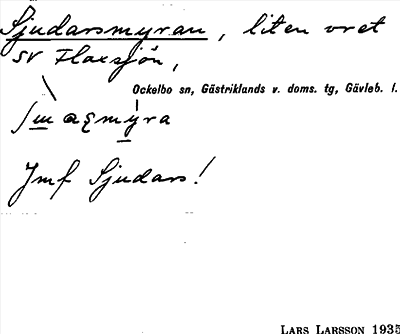 Sjudarsmyran, liten vret
SV Flaxsjön,
Ockelbo sn, Gästriklands v. doms. tg, Gävleb. l.
Jmf Sjudars!
LARS LARSSON 1935